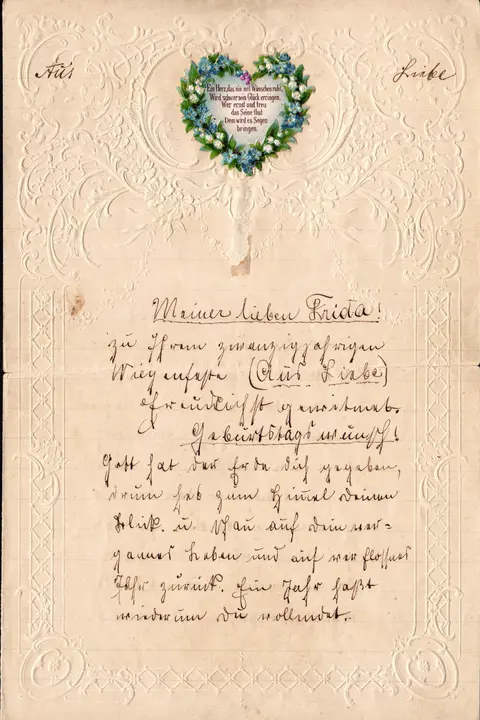 Aus Liebe
Ein Herz, das nie mit Wünschen ruht,
Wird schwer sein Glück erringen.
Wer ernst und treu
das Seine thut
Dem wird es Segen
bringen.
Meiner lieben Frida!
zu Ihrem zwanzigjahrigen
Wiegenfeste (Aus Liebe)
freundlichst gewitmet.
Geburtstagswunsch!
Gott hat der Erde dich gegeben,
drum heb zum Himel deinen
Blick. u. schau auf dein ver=
gannes Leben und auf verfloßnes
Jahr zurück. Ein Jahr haßt
wiederum du vollendet.